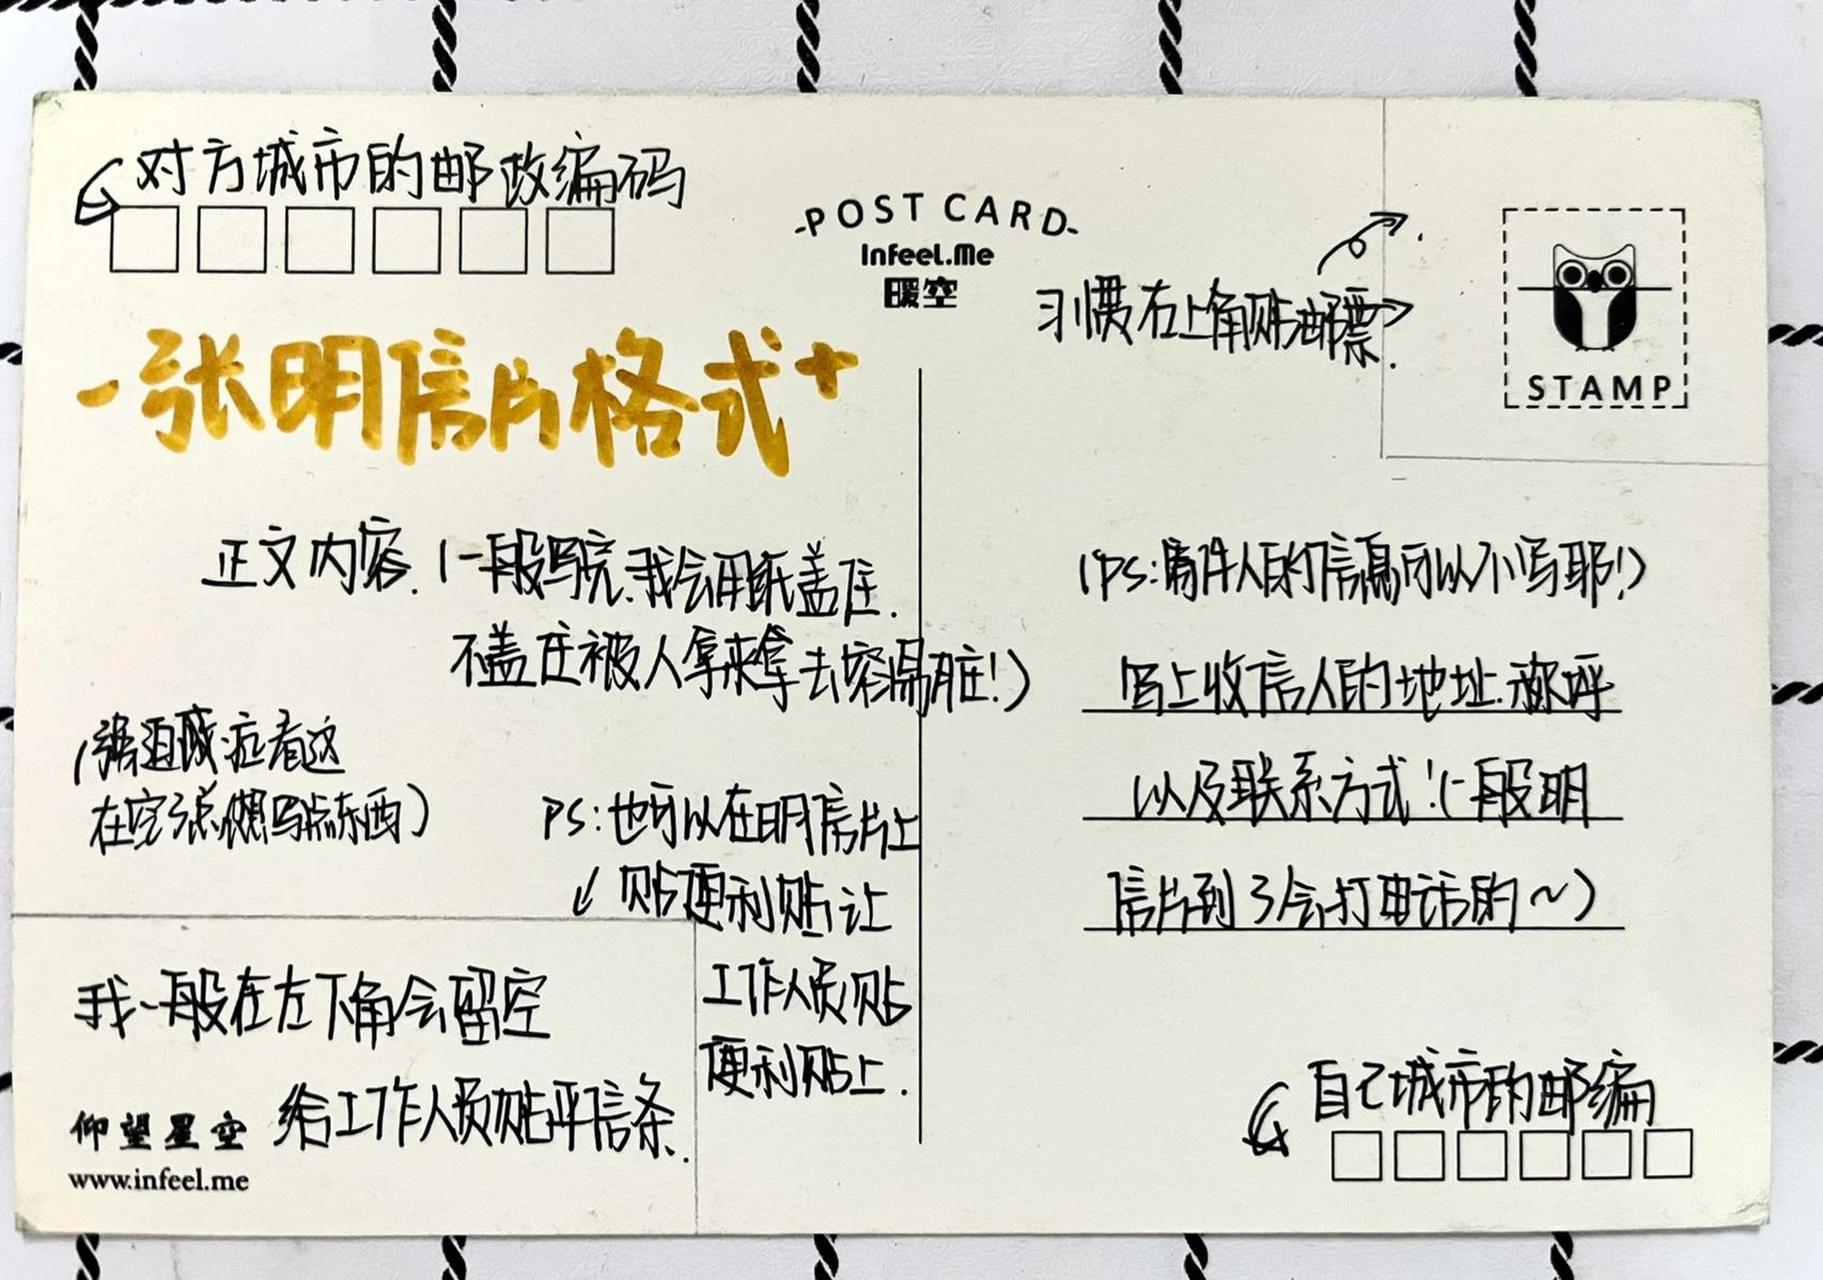 对方城市的邮政编码
-POST CARD-
Infeel.Me
暖空
习惯右上角贴邮票.
STAMP
-张明信片格式+
正文内容.(一般写完.我会用纸盖住.
不盖住被人拿来拿去容易脏!)
(强迫症看这
在空了点写点东西)
PS:也可以在明信片上
贴便利贴让
工作人员贴
便利贴上.
我一般在左下角会留空
给工作人员贴平信条.
仰望星空
www.infeel.me
(PS:寄件人的信息可以不写耶!)
写上收信人的地址.称呼
以及联系方式!(一般明
信片到了会打电话的~)
自己城市的邮编